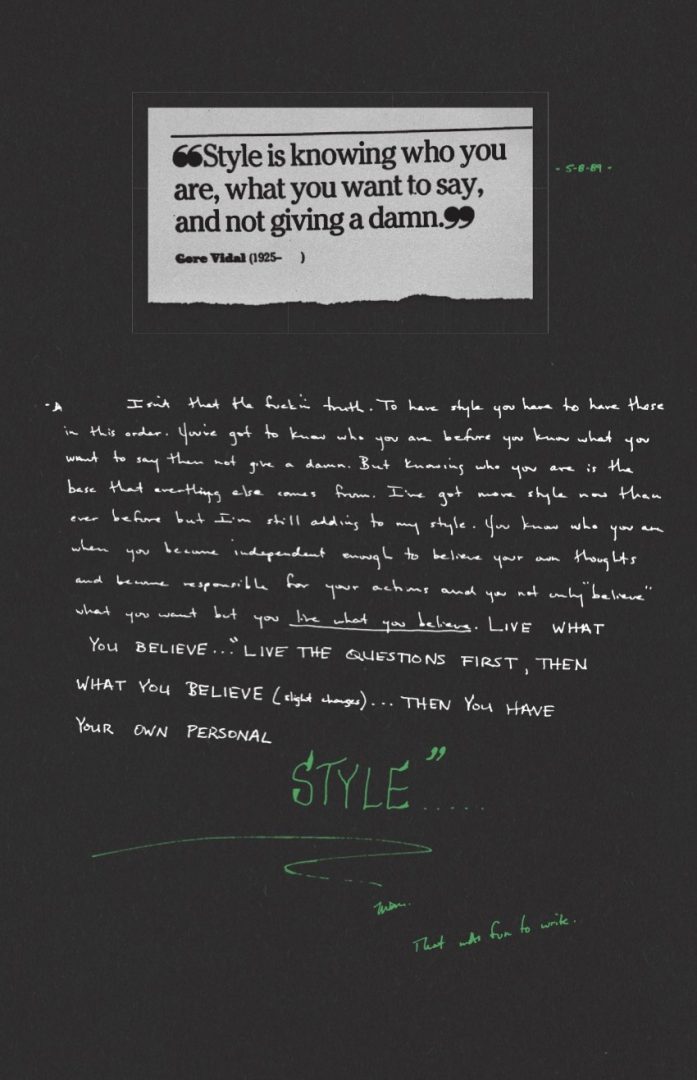 “Style is knowing who you
are, what you want to say,
and not giving a damn.”
Gore Vidal (1925– )
- 5-8-89 -
Isn't that the fuckin truth. To have style you have to have these
in this order. You've got to know who you are before you know what you
want to say then not give a damn. But knowing who you are is the
base that everthing else comes from. I've got more style now than
ever before but I'm still adding to my style. You know who you are
when you become independent enough to believe your own thoughts
and become responsible for your actions and you not only "believe"
what you want but you live what you believe. LIVE WHAT
YOU BELIEVE..." LIVE THE QUESTIONS FIRST, THEN
WHAT YOU BELIEVE (slight changes)... THEN YOU HAVE
YOUR OWN PERSONAL
STYLE".....
That was fun to write.